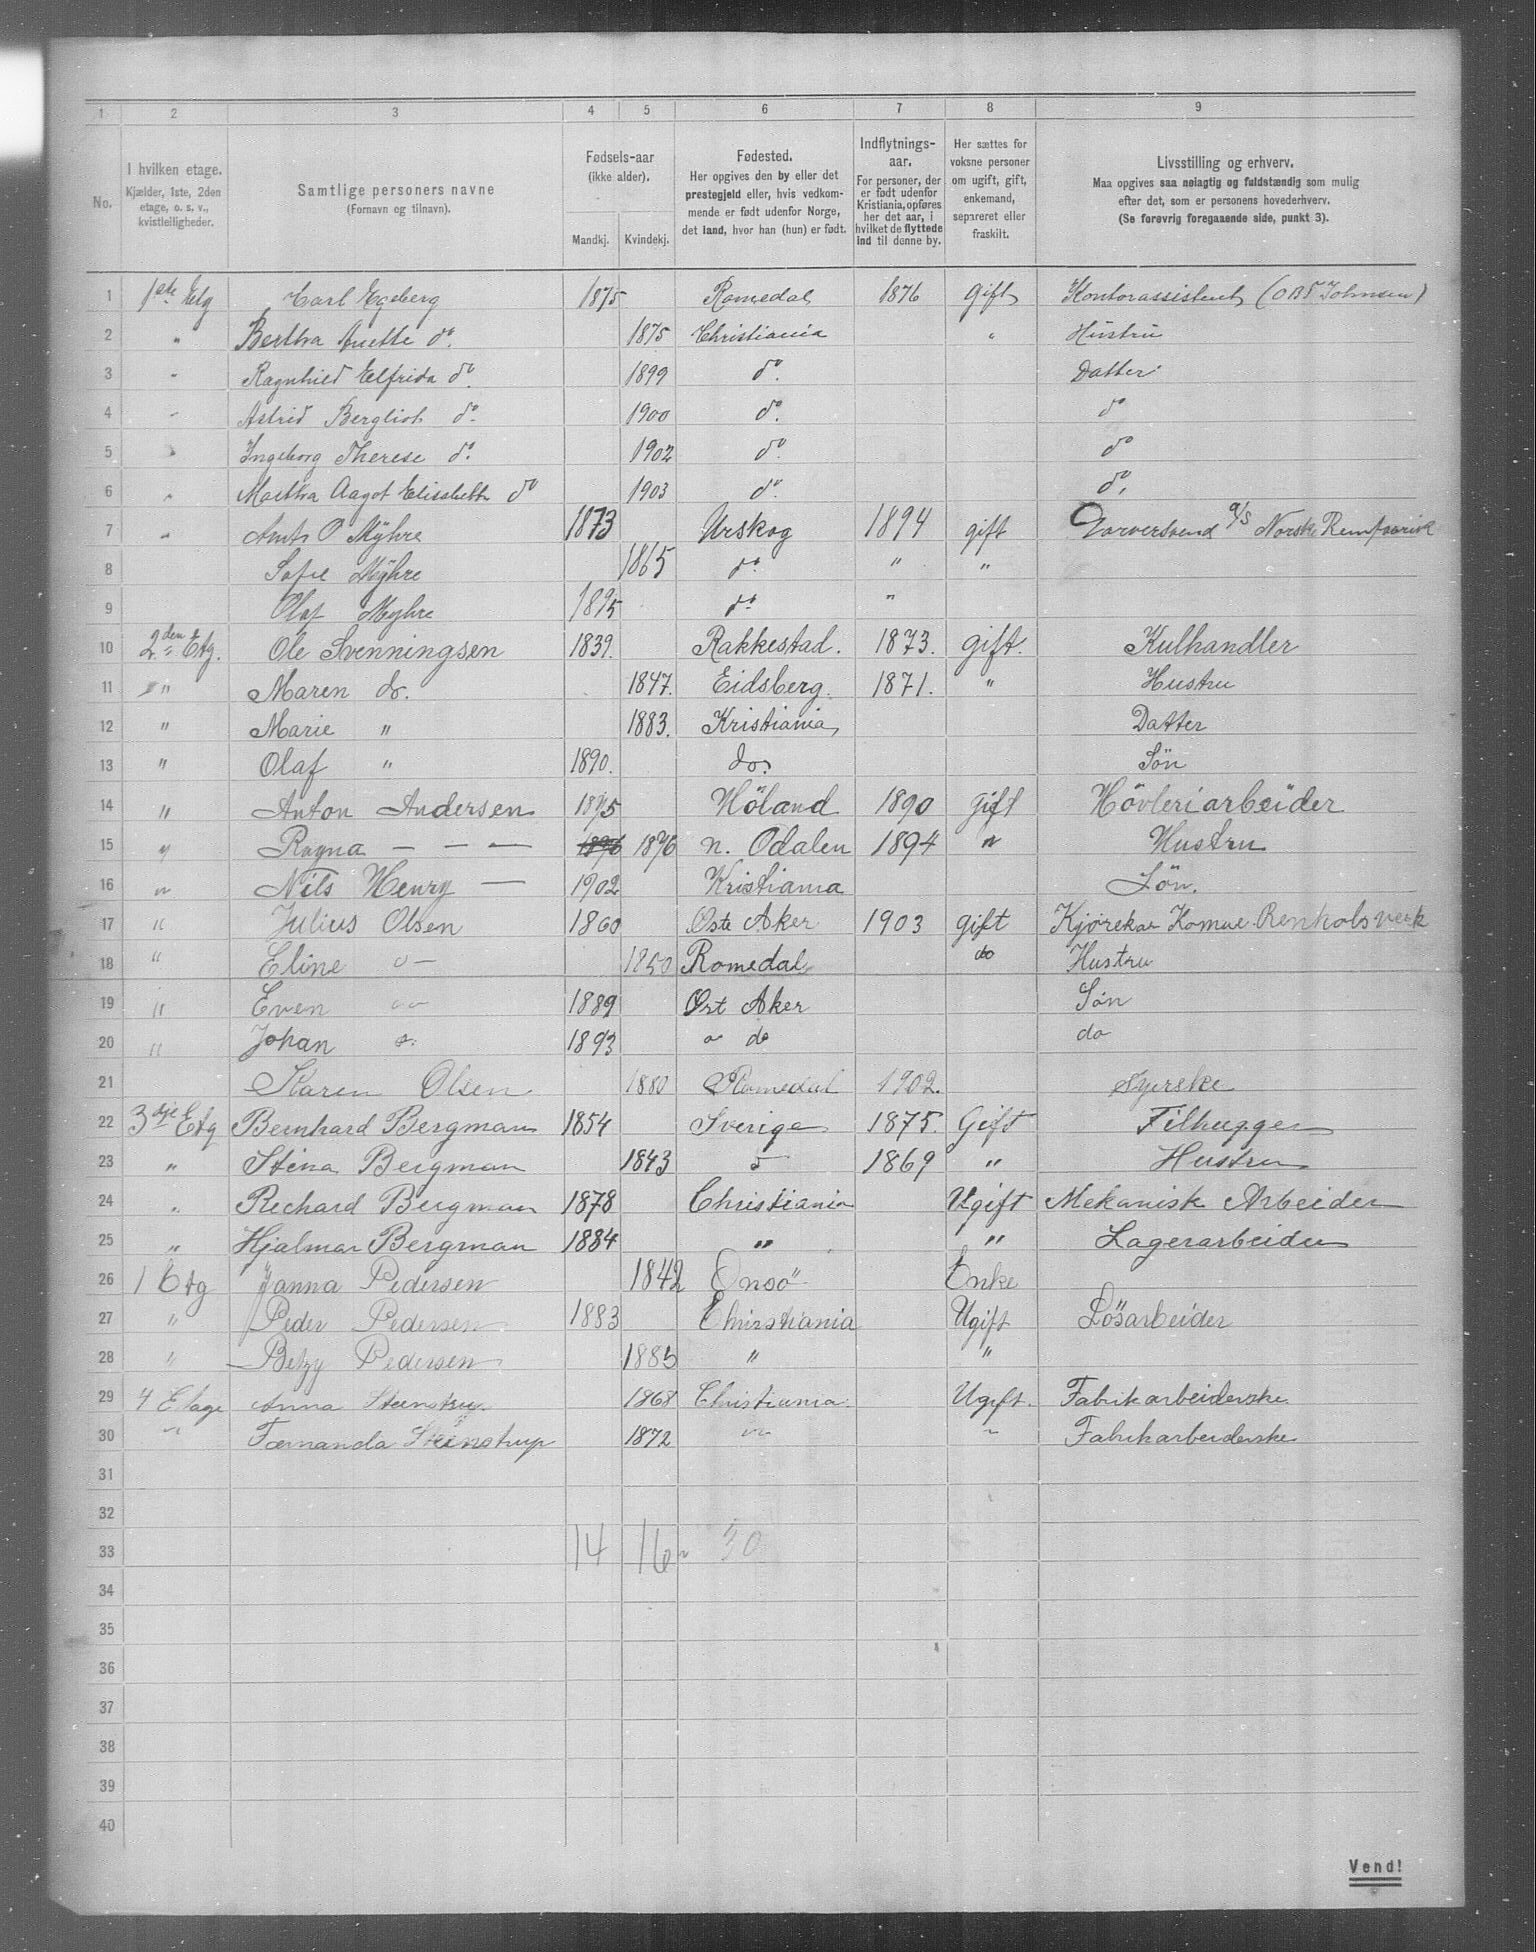 1 2 3 4 5 6 7 8 9
No.
I hvilken etage.
Kjælder, 1ste, 2den
etage, o. s. v.,
kvistleiligheder.
Samtlige personers navne
(Fornavn og tilnavn).
Fødsels-aar
(ikke alder).
Mandkj. Kvindekj.
Fødested.
Her opgives den by eller det
prestegjeld eller, hvis vedkom-
mende er født udenfor Norge,
det land, hvor han (hun) er født.
Indflytnings-
aar.
For personer, der
er født udenfor
Kristiania, opføres
her det aar, i
hvilket de flyttede
ind til denne by.
Her sættes for
voksne personer
om ugift, gift,
enkemand,
separeret eller
fraskilt.
Livsstilling og erhverv.
Maa opgives saa nøiagtig og fuldstændig som mulig
efter det, som er personens hovederhverv.
(Se forøvrig foregaaende side, punkt 3).
1 1ste Etg Carl Egeberg 1875 Romedal 1876 Gift Kontorassistent (OBT Johnsen)
2 " Bertha Anette do. 1875 Christiania " Hustru
3 " Ragnhild Elfrida do. 1899 do. Datter
4 " Astrid Bergliot do. 1900 do. do
5 " Ingeborg Therese do. 1902 do. do
6 " Martha Aagot Elisabeth do 1903 do. do.
7 " O Mÿhre 1873 Urskog 1894 gift Garversvend a/s Norske Remfabrik
8 Sofie Mÿhre 1865 do. " "
9 Olaf Myhre 1895 do. "
10 2den Etg. Ole Svenningsen 1839. Rakkestad. 1873. gift. Kulhandler
11 " Maren do. 1847. Eidsberg. 1871. " Hustru
12 " Marie " 1883. Kristiania, Datter
13 " Olaf " 1890. do. Sön
14 " Anton Andersen 1875 Höland 1890 gift Hövleriarbeider
15 " Ragna — — — 1876 1876 N. Odalen 1894 " Hustru
16 " Nils Henry — 1902 Kristiania Sön.
17 " Julius Olsen 1860 Øste Aker 1903 gift Kjørekar Komue Renholsverk
18 " Eline o— 1850 Romedal do Hustru
19 " Even oo 1889 Ørt Aker Søn
20 " Johan o. 1893 o do do
21 Karen Olsen 1880 Romedal 1902. Syerske
22 3dje Etg Bernhard Bergman 1854 Sverige 1875. Gift Filhugger
23 " Stina Bergman 1843 " 1869 " Hustru
24 " Richard Bergman 1878 Christiania Ugift Mekanisk Arbeider
25 " Hjalmar Bergman 1884 " " Lagerarbeider
26 1 Etg Janna Pedersen 1842 Onsö Enke
27 " Peder Pedersen 1883 Christiania Ugift Lösarbeider
28 " Betzy Pedersen 1885 " "
29 4 Etage Anna Steinstrup 1868 Christiania. Ugift. Fabrikarbeiderske.
30 " Fernanda Steinstrup 1872 " " Fabrikarbeiderske
31
32
33 14 16 30
34
35
36
37
38
39
40
Vend!